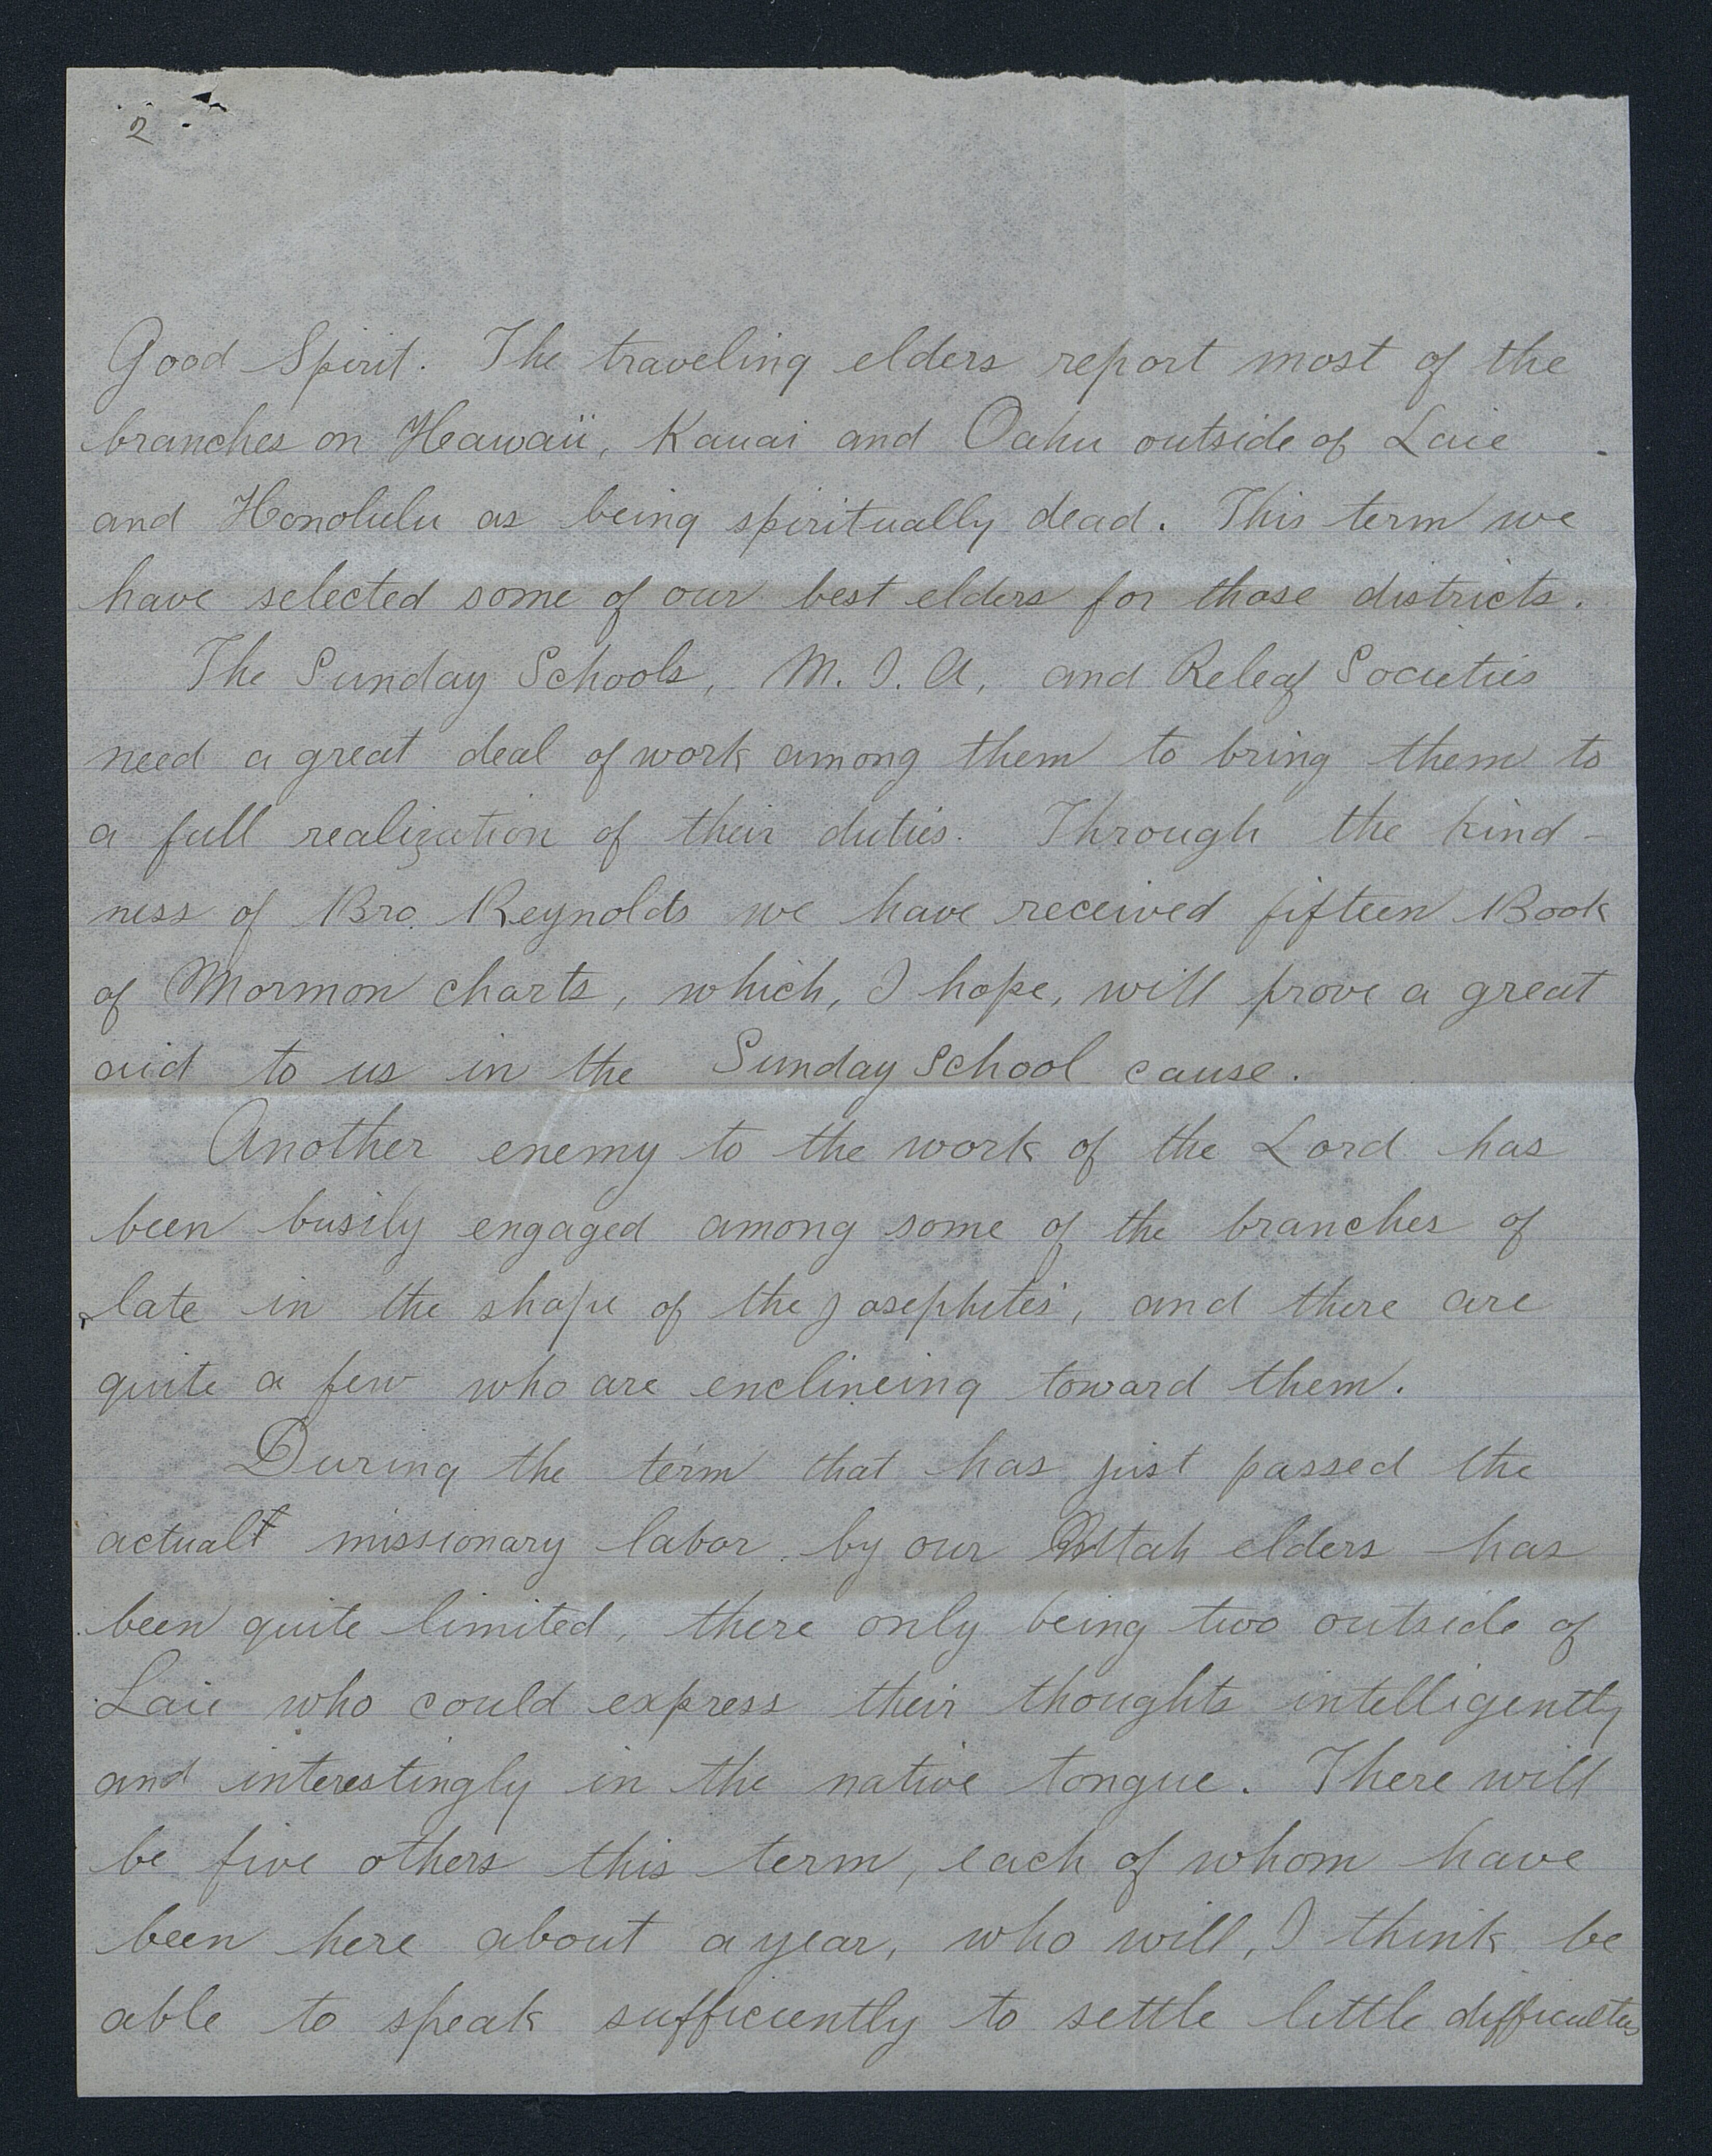 2
Good Spirit. The traveling elders report most of the
branches on Heawaii, Kauai and Oahu outside of Laie
and Honolulu as being spiritually dead. This term we
have selected some of our best elders for those districts.
The Sunday Schools, M. I. A, and Releaf Societies
need a great deal of work among them to bring them to
a full realization of their duties. Through the kind-
ness of Bro. Reynolds we have received fifteen Book
of Mormon charts, which, I hope, will prove a great
aid to us in the Sunday School cause.
Another enemy to the work of the Lord has
been busily engaged among some of the branches of
late in the shape of the josephites, and there are
quite a few who are enclineing toward them.
During the term that has just passed the
actual missionary labor by our Utah elders has
been quite limited, there only being two outside of
Laie who could express their thoughts intelligently
and interestingly in the native tongue. There will
be five others this term, each of whom have
been here about a year, who will, I think be
able to speak sufficiently to settle little difficulties